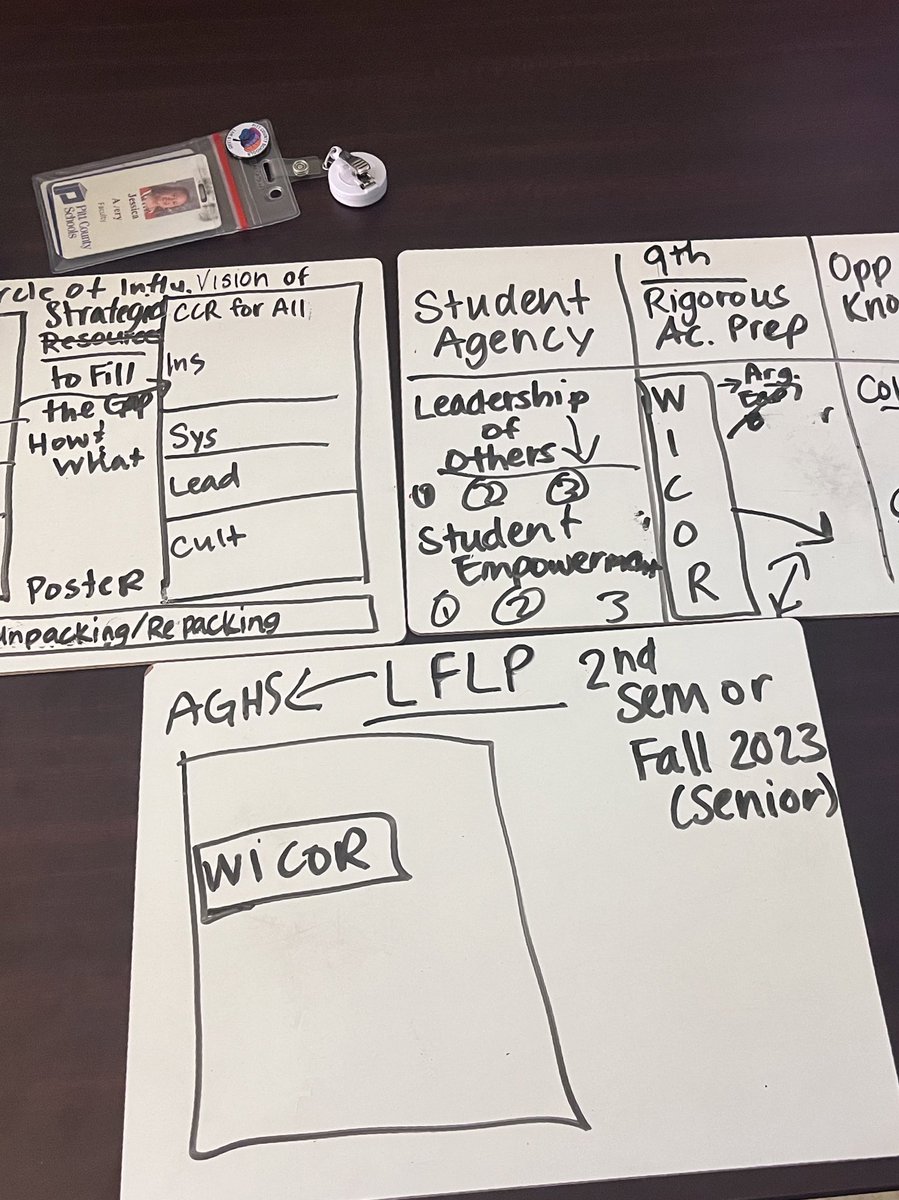 Pitt County
Schools
Jessica
Avery
Faculty
rcle of Influ. Vision of
Strategic
Resources
to Fill
the Gap
How &
What
Poster
CCR for All
Ins
Sys
Lead
Cult
Unpacking/Repacking
Student
Agency
Leadership
of
Others
① ② ③
Student
Empowerment
① ② 3
9th
Rigorous
Ac. Prep
W
I
C
O
R
Arg.
Opp
Kno
Col
AGHS ← LFLP
2nd
Sem or
Fall 2023
(Senior)
WiCOR